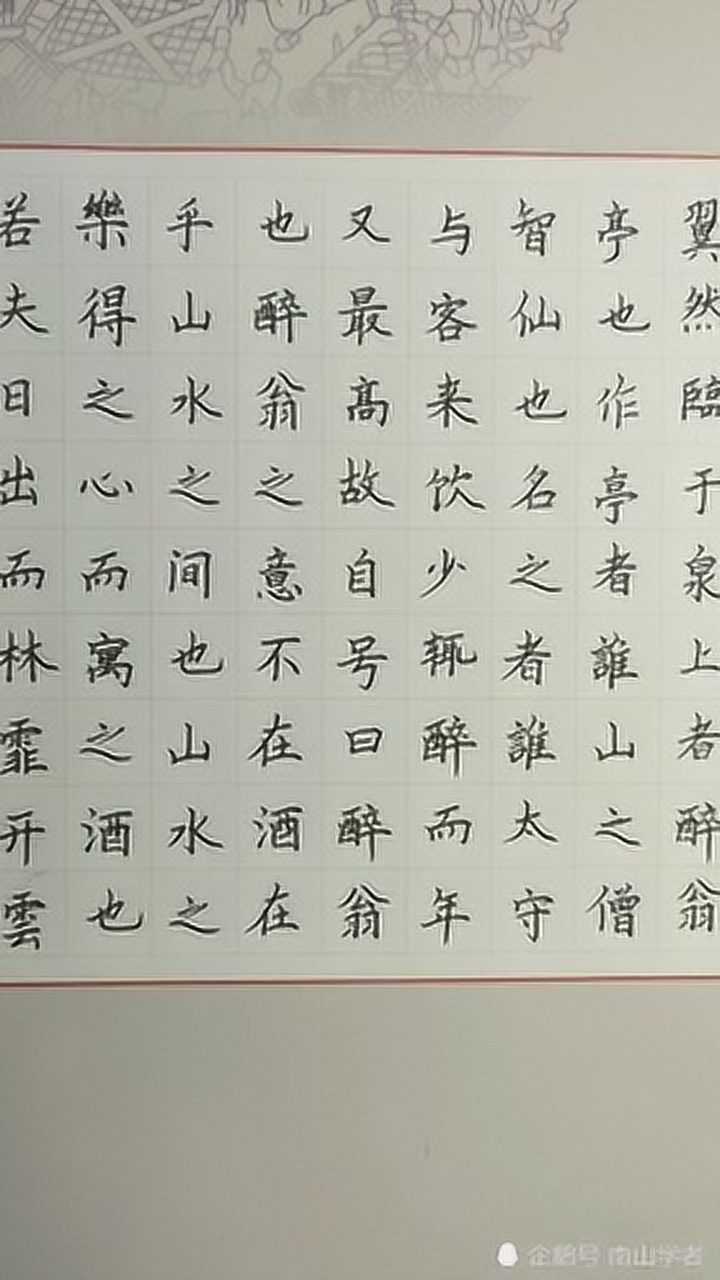 翼然臨于泉上者醉翁
亭也作亭者誰山之僧
智仙也名之者誰太守
与客来饮少辄醉而年
又最高故自号曰醉翁
也醉翁之意不在酒在
乎山水之间也山水之
樂得之心而寓之酒也
若夫日出而林霏开雲
企鹅号 南山学者